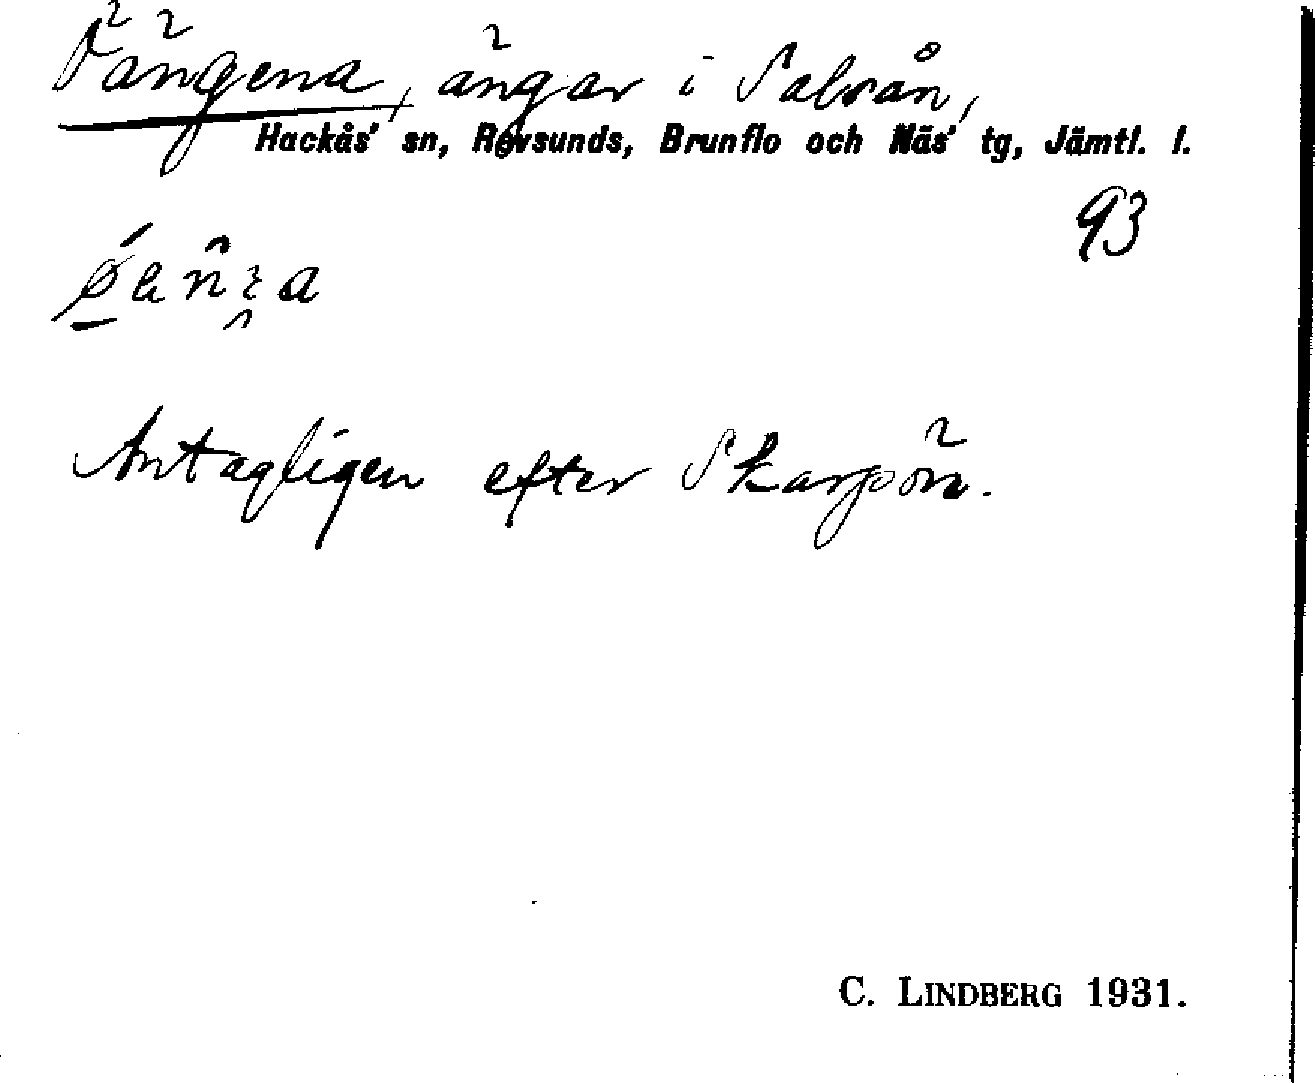 Öängena, ängar i Salvån,
Hackås' sn, Revsunds, Brunflo och Näs' tg, Jämtl. l.
93
Antagligen efter Skarpön.
C. LINDBERG 1931.